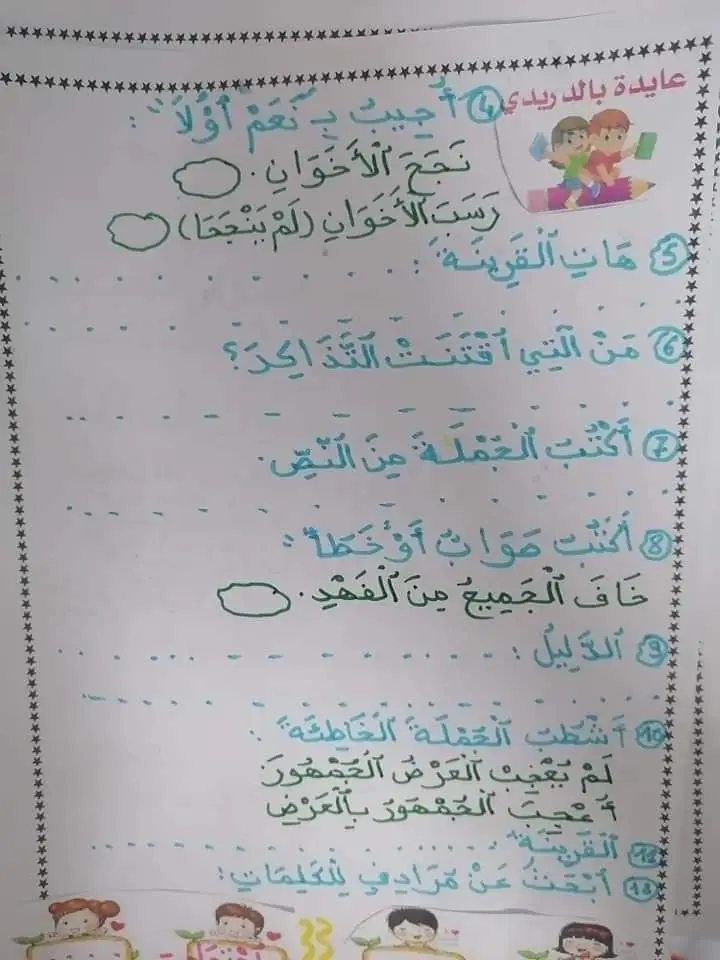 عايدة بالدريدي
4 أُجِيبُ بِـ "نَعَمْ أَوْ لَا" :
نَجَحَ الْأَخَوَانِ.
رَسَبَ الْأَخَوَانِ (لَمْ يَنْجَحَا)
5 هَاتِ الْقَرِينَةَ :
6 مَنْ الَّتِي اقْتَنَتْ التَّذَاكِرَ؟
7 أَكْتُبُ الْجُمْلَةَ مِنَ النَّصِّ.
8 أَكْتُبُ صَوَابٌ أَوْ خَطَأٌ :
خَافَ الْجَمِيعُ مِنَ الْفَهْدِ.
9 الدَّلِيلُ :
10 أَشْطُبُ الْجُمْلَةَ الْخَاطِئَةَ :
لَمْ يُعْجِبْ الْعَرْضُ الْجُمْهُورَ
أُعْجِبَ الْجُمْهُورُ بِالْعَرْضِ
12 الْقَرِينَةُ
13 أَبْحَثُ عَنْ مُرَادِفٍ لِلْكَلِمَاتِ :